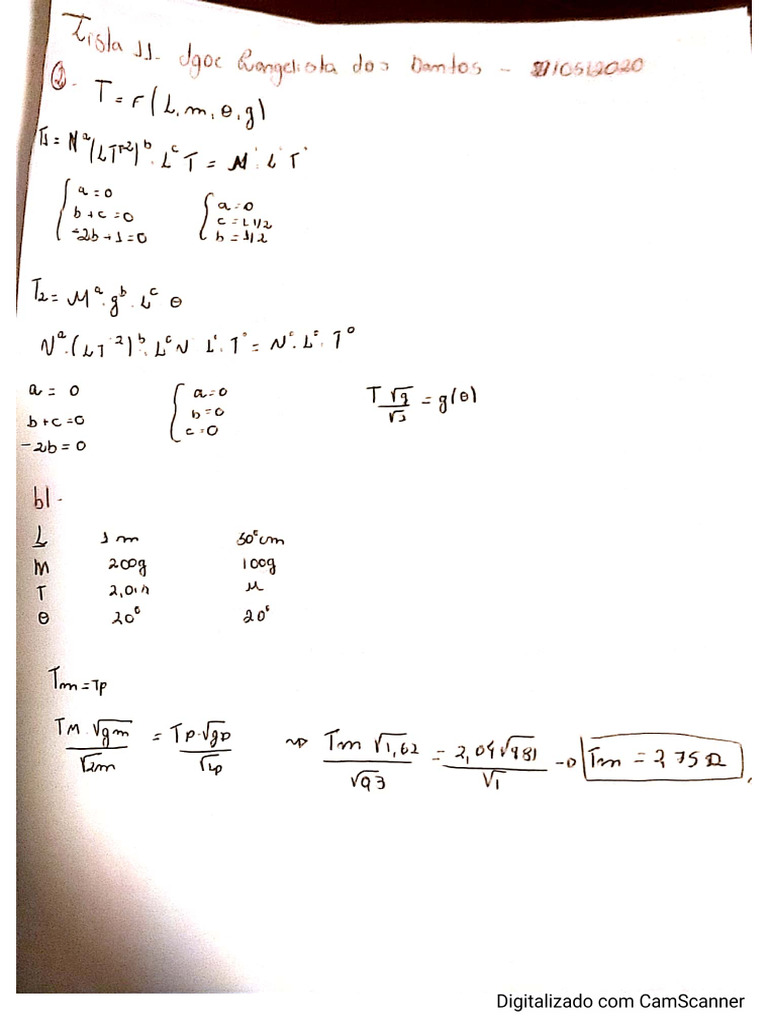 Lista 11. Evangelista dos Santos - /05/2020
2. T = F(L, m, θ, g)
π1 = Mᵃ(LT⁻²)ᵇ. Lᶜ T = M° L° T°
a = 0
b + c = 0
-2b + 1 = 0
a = 0
c = -1/2
b = 1/2
π2 = Mᵃ. gᵇ. Lᶜ θ
Mᵃ.(LT⁻²)ᵇ. Lᶜ M° L° T° = M°. L°. T°
a = 0
b + c = 0
-2b = 0
a = 0
b = 0
c = 0
T √g / √L = g(θ)
b) -
L 1 m 50 cm
m 200g 100g
T 2,04
θ 20° 20°
Tm = Tp
Tm . √gm / √Lm = Tp . √gp / √Lp → Tm √1,62 / √ = 2,04 √9,81 / √1 → Tm = 2,75 s
Digitalizado com CamScanner